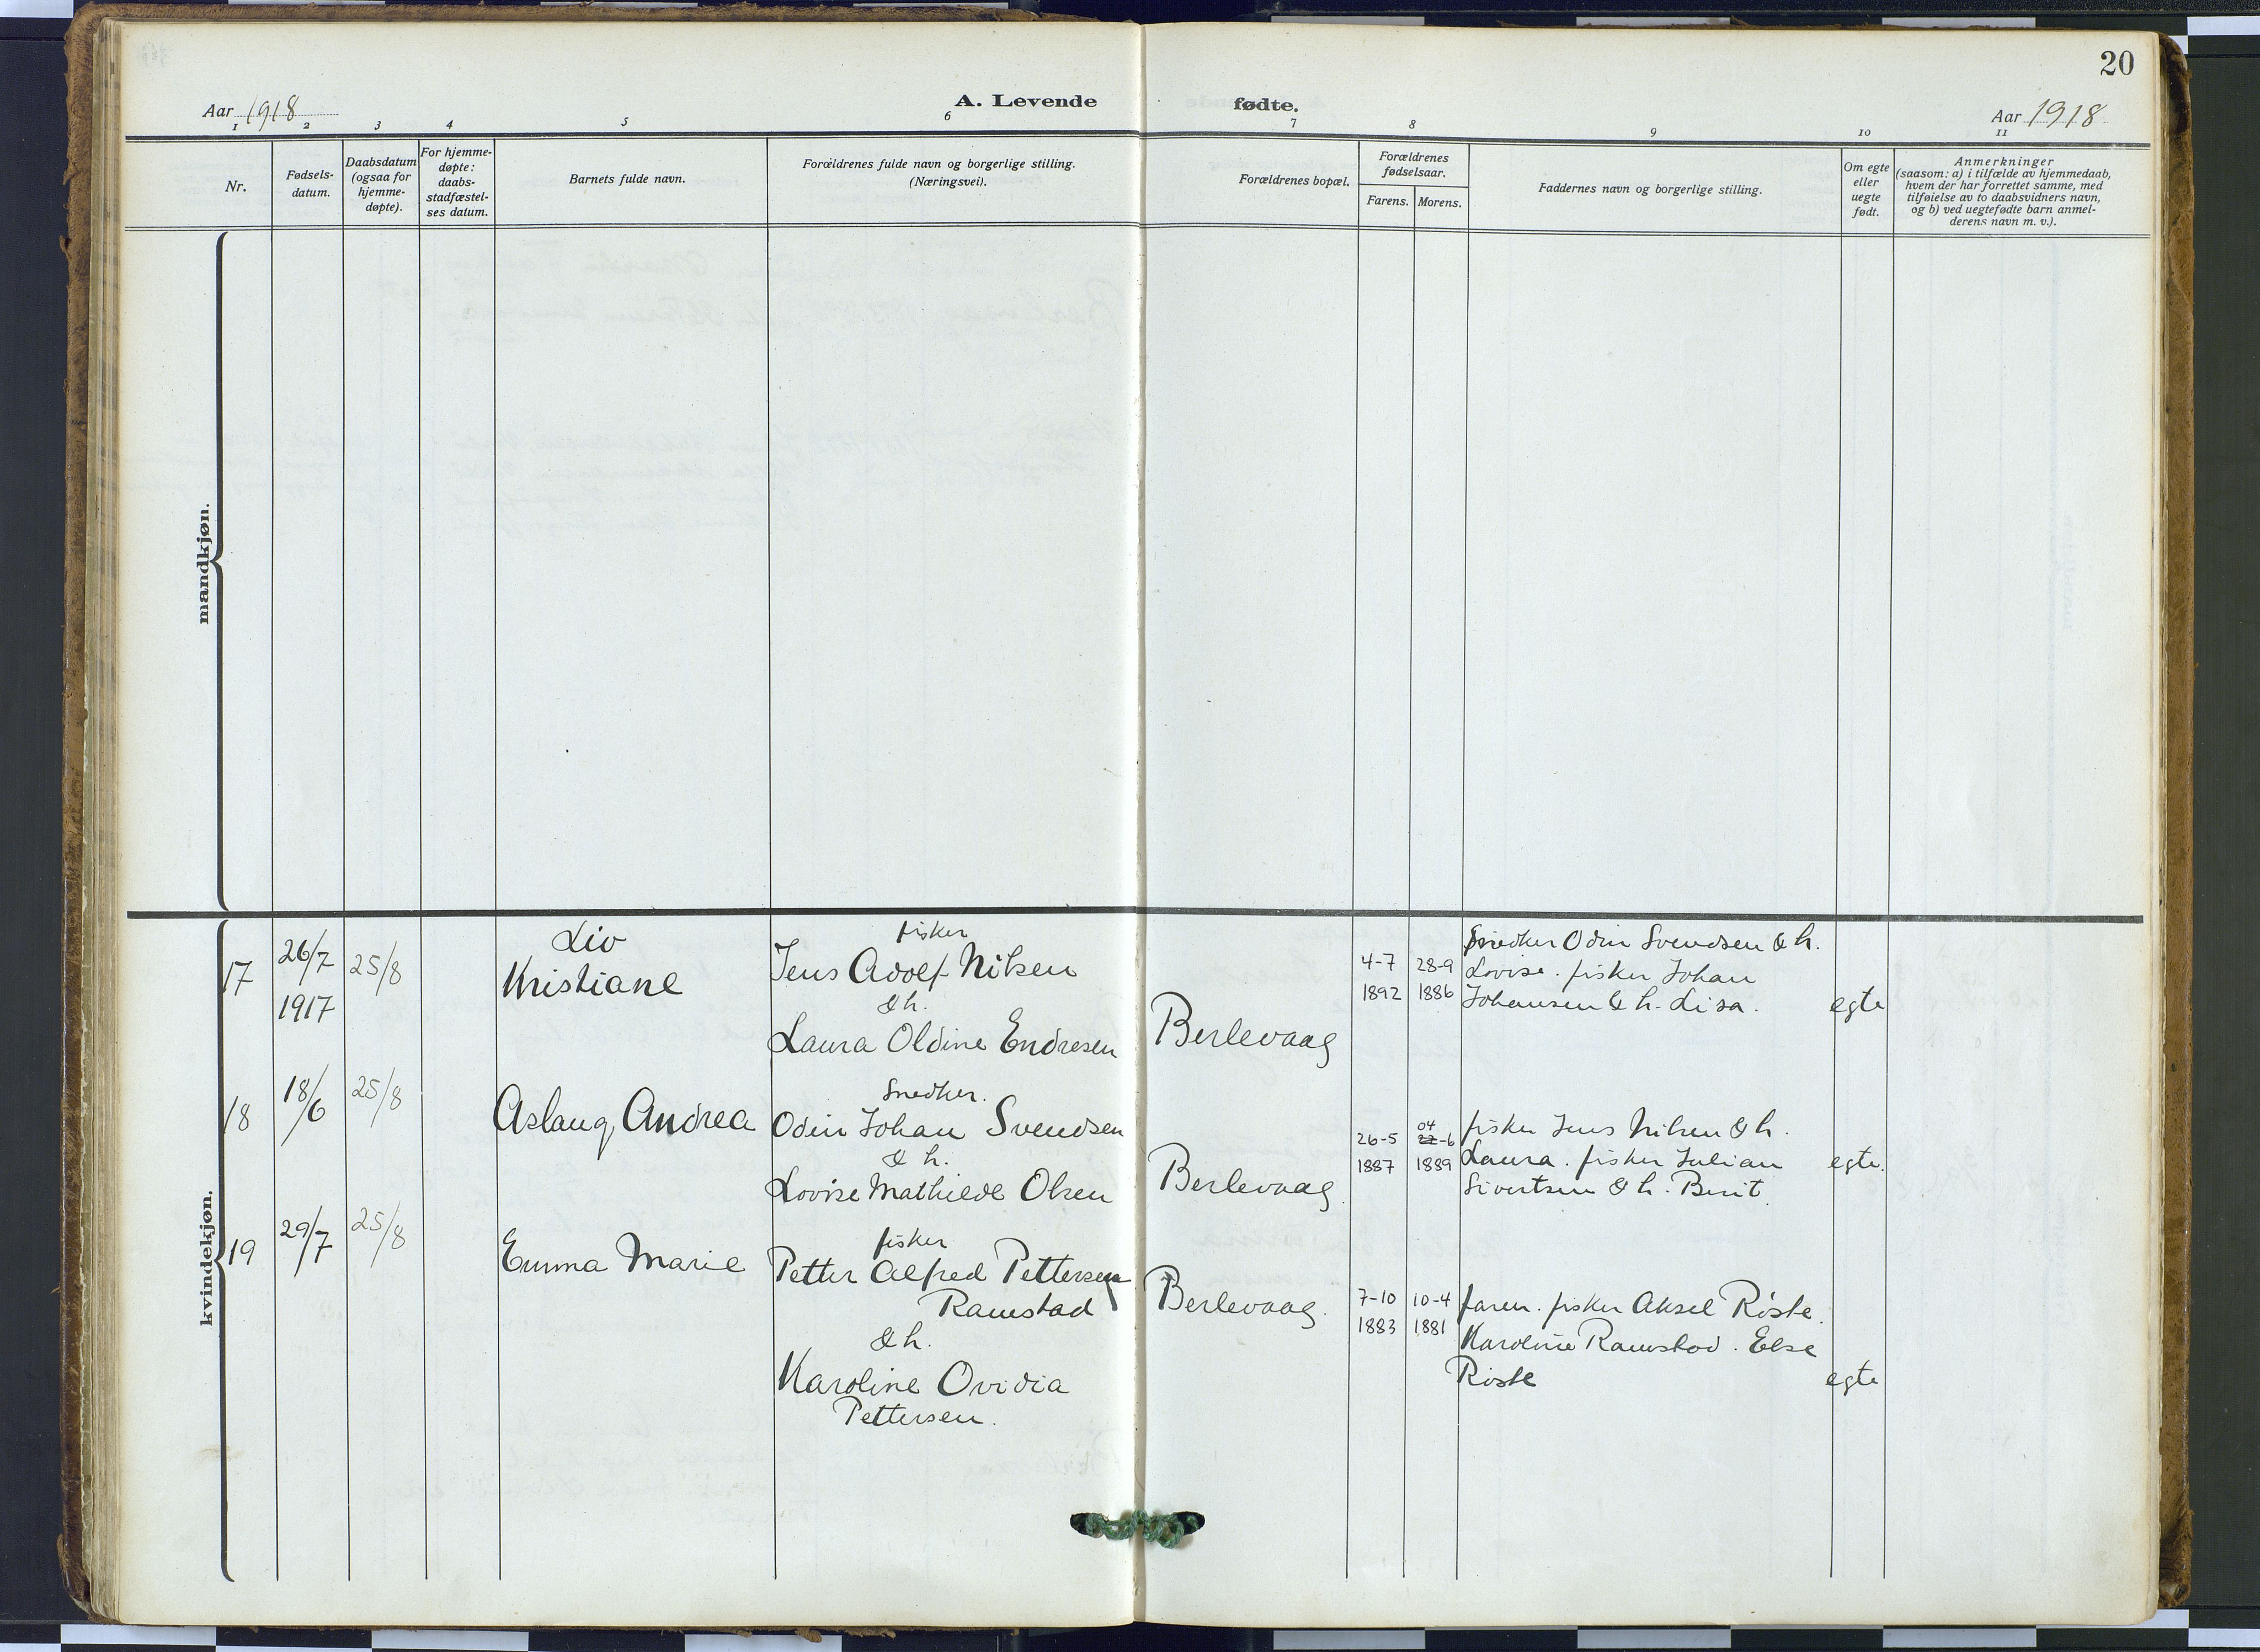 20
Aar 1918
A. Levende fødte.
Aar 1918
1 2 3 4 5 6 7 8 9 10 11
Nr.
Fødsels-
datum.
Daabsdatum
(ogsaa for
hjemme-
døpte).
For hjemme-
døpte:
daabs-
stadfæstel-
ses datum.
Barnets fulde navn.
Forældrenes fulde navn og borgerlige stilling.
(Næringsvei).
Forældrenes bopæl.
Forældrenes
fødselsaar.
Farens. Morens.
Faddernes navn og borgerlige stilling.
Om egte
eller
uegte
født.
Anmerkninger
(saasom: a) i tilfælde av hjemmedaab,
hvem der har forrettet samme, med
tilføielse av to daabsvidners navn,
og b) ved uegtefødte barn anmel-
derens navn m. v.).
mandkjøn.
kvindekjøn.
17
26/7
1917
25/8
Liv
Kristiane
fisker
Jens Adolf Nilsen
& h.
Laura Oldine Endresen
Berlevaag
4-7
1892
28-9
1886
Snedker Odin Svendsen & h.
Lovise. fisker Johan
Johansen & h. Lisa.
egte
18
18/6
25/8
Aslaug Andrea
Snedker.
Odin Johan Svendsen
& h.
Lovise Mathilde Olsen
Berlevaag
26-5
1887
04
22-6
1889
fisker Jens Nilsen & h.
Laura. fisker Julian
Sivertsen & h. Berit.
egte.
19
29/7
25/8
Emma Marie
fisker
Petter Alfred Pettersen
Ramstad
& h.
Karoline Ovidia
Pettersen.
Berlevaag.
7-10
1883
10-4
1881
faren. fisker Aksel Röste.
Karoline Ramstad. Else
Röste
egte